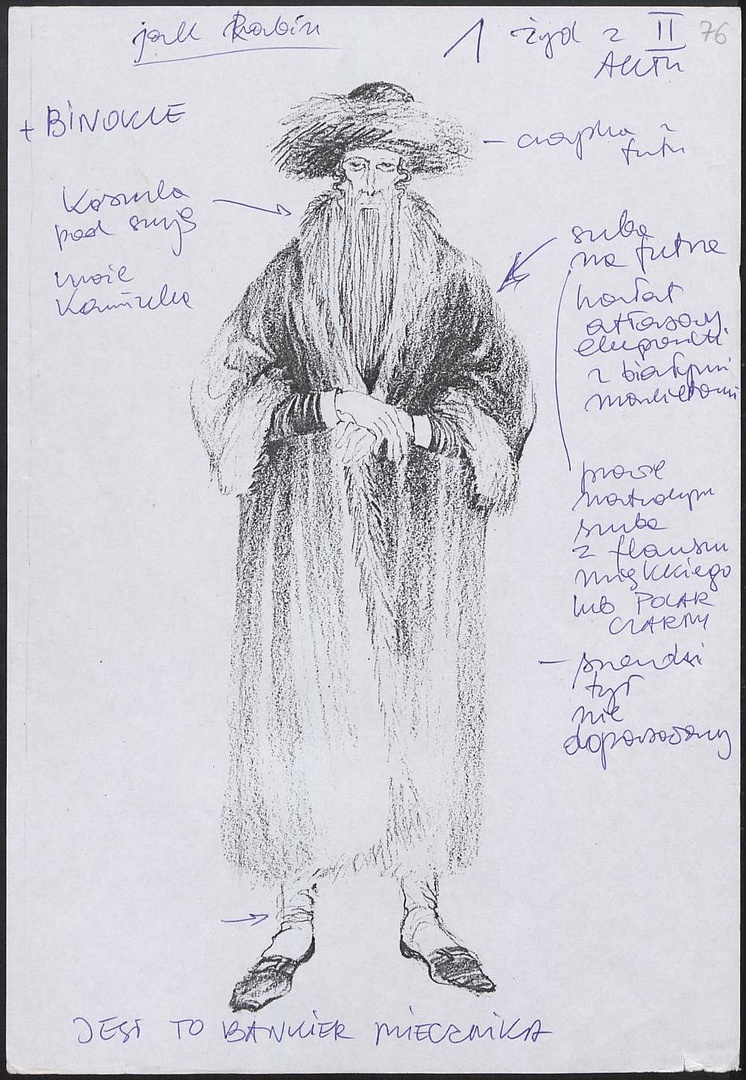 jak Rabin
1 Żyd z II
AKTU
76
+ BINOKLE
czapka z
futr
Koszula
pod szyję
może
Kamizelka
szuba
na futrze
hałat
atłasowy
elegancki
z białymi
mankietami
szuba
z flauszu
miękkiego
lub POLAR
CZARNY
tył
nie
dopasowany
JEST TO BANKIER MIECZNIKA